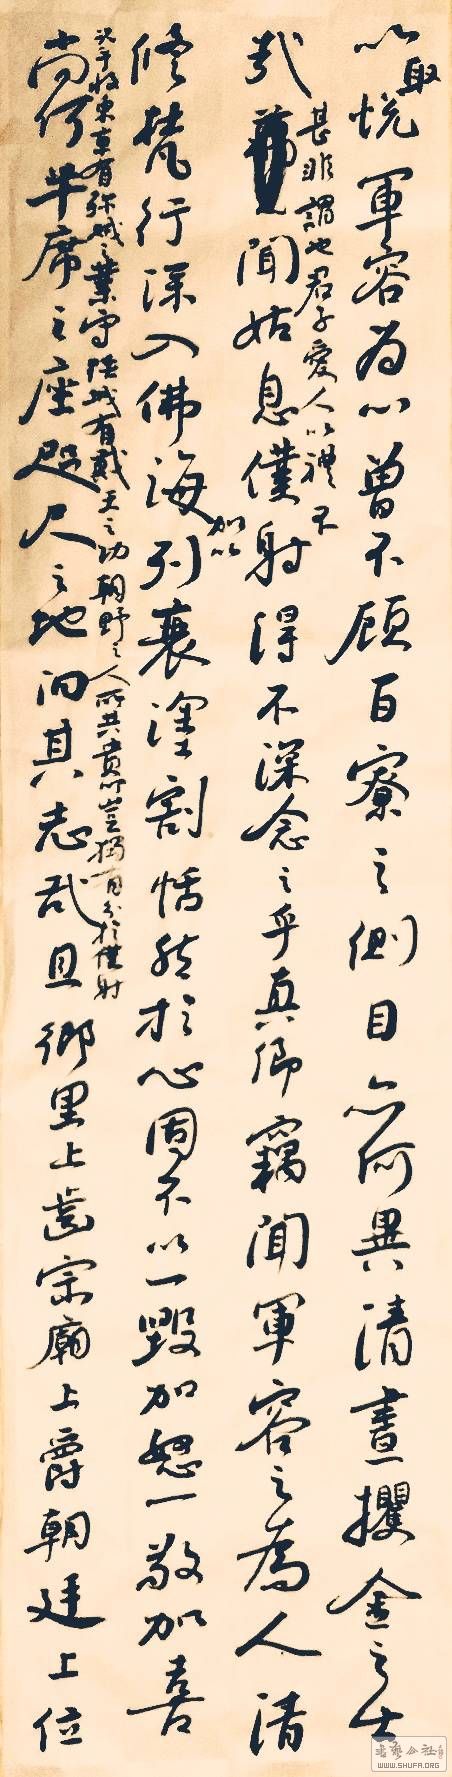 以取悅軍容為心曾不顧百寮之側目亦何異清晝攫金之士
甚非謂也君子愛人以禮不
哉聞姑息僕射得不深念之乎真卿竊聞軍容之為人清
加以
修梵行深入佛海利衰塗割恬然於心固不以一毀加怒一敬加喜
況乎收東京有殄賊之業守陝城有戴天之功朝野之人所共貴仰豈獨有分於僕射
尚何半席之座咫尺之地汩其志哉且鄉里上齒宗廟上爵朝廷上位
書藝公社
WWW.SHUFA.ORG